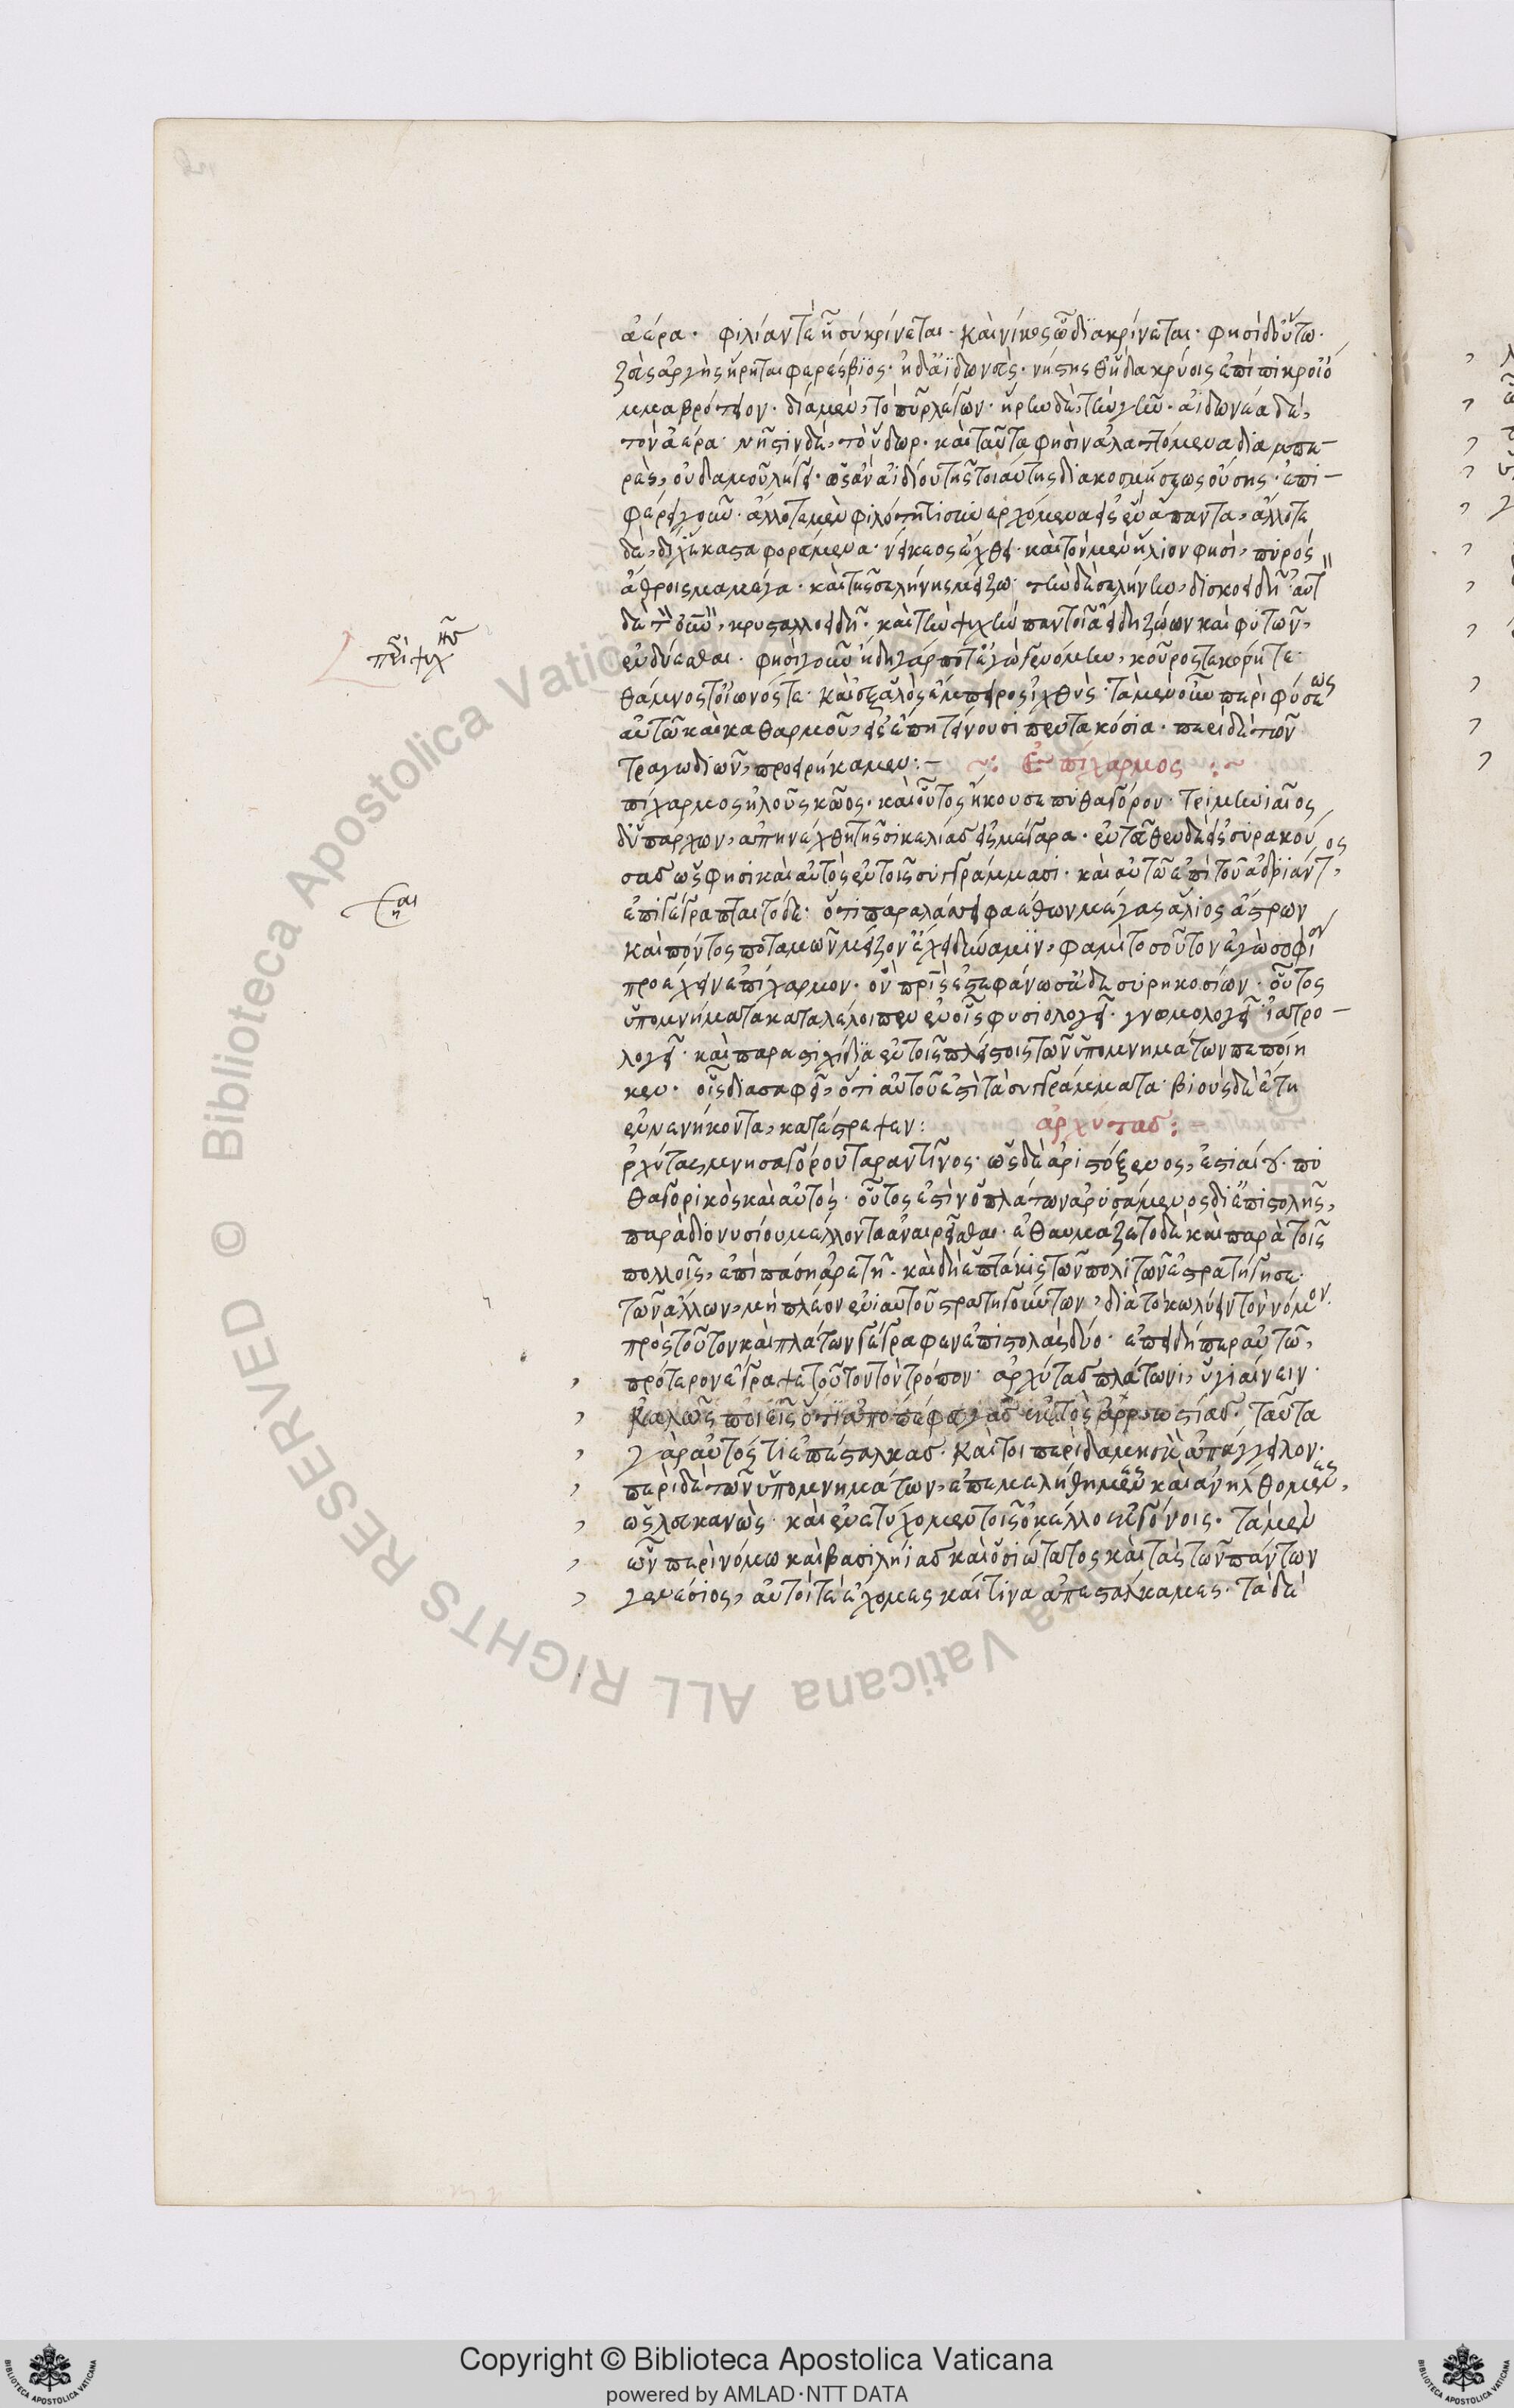 ἀέρα· φιλίαν τε ᾗ συκρίνεται· καὶ νίκος ᾧ διακρίνεται· φησὶ δ' οὕτω·
ζεὺς ἀργὴς ἥρη τε φερέσβιος· ἠδ' ἀϊδωνεὺς· νῆστις θ' ἣ δακρύοις ἐπιπικροῖ ὄ
μμα βρότειον· δία μὲν, τὸ πῦρ λέγων· ἥρην δὲ, τὴν γῆν· ἀϊδωνέα δὲ,
τὸν ἀέρα· νῆστιν δὲ, τὸ ὕδωρ· καὶ ταῦτα φησὶν ἀλαττόμενα διαμπε-
ρὲς, οὐδαμοῦ λήγει· ὡς ἂν ἀϊδίου τῆς τοιαύτης διακοσμήσεως οὔσης· ἐπι-
φέρει γοῦν· ἄλλοτε μὲν φιλότητι συνερχόμενα εἰς ἓν ἅπαντα, ἄλλοτε
δὲ, δίχ' ἕκαστα φορεύμενα· νείκεος ἔχθει· καὶ τὸν μὲν ἥλιον φησὶ, πυρὸς
ἄθροισμα μέγα· καὶ τῆς σελήνης μείζω· τὴν δὲ σελήνην, δισκοειδῆ· αὐτ
δὲ τ οὐν, κρυσταλλοειδῆ· καὶ τὴν ψυχὴν παντοῖα εἴδη ζώων καὶ φυτῶν,
ἐνδύεσθαι· φησὶ γοῦν ἤδη γάρ ποτ' ἐγὼ γενόμην, κοῦρος τε κόρη τε·
θάμνος τ' οἰωνός τε· καὶ ἐξ ἁλὸς ἔμπυρος ἰχθὺς· τὰ μὲν οὖν περὶ φύσεως
αὐτῶ καὶ καθαρμοὶ, εἰς ἔπη τείνουσι πεντακόσια· περὶ δὲ τῶν
τραγωδιῶν, προειρήκαμεν:-
~: Ἐπίχαρμος :~
πίχαρμος ἡλοῦς κῶος· καὶ οὗτος ἤκουσε πυθαγόρου· τριμηνιαῖος
δ' ὑπάρχων, ἀπηνέχθη τῆς σικελίας εἰς μέγαρα· ἐντεῦθεν δὲ εἰς συρακού
σας ὥς φησι καὶ αὐτὸς ἐν τοῖς συγγράμμασι· καὶ αὐτῶ ἐπὶ τοῦ ἀδριάντος
ἐπιγέγραπται τόδε· εἴ τι παραλάσσει φαέθων μέγας ἅλιος ἄστρων
καὶ πόντος ποταμῶν μείζον' ἔχει δύναμιν, φαμὶ τοσοῦτον ἐγὼ σοφίον
προέχειν ἐπίχαρμον· ὃν πρὶς ἐστεφάνωσ' ἅδε συρηκοσίων· οὗτος
ὑπομνήματα καταλέλοιπεν ἐν οἷς φυσιολογεῖ· γνωμολογεῖ· ἰατρο-
λογεῖ· καὶ παραστιχίδια ἐν τοῖς πλείστοις τῶν ὑπομνημάτων πεποίη
κεν· οἷς διασαφεῖ, ὅτι αὐτοῦ ἐστὶ τὰ συγγράμματα· βιοὺς δὲ ἔτη
ἐνενήκοντα, κατέστρεψεν:
ἀρχύτας:
ρχύτας μνησαγόρου ταραντῖνος· ὡς δὲ ἀριστόξενος, ἑστιαίου· πυ
θαγορικὸς καὶ αὐτὸς· οὗτος ἐστὶν ὁ πλάτωνα ῥυσάμενος δι' ἐπιστολῆς,
παρὰ διονυσίου μέλλοντα ἀναιρεῖσθαι· ἐθαυμάζετο δὲ καὶ παρὰ τοῖς
πολλοῖς, ἐπὶ πάσῃ ἀρετῇ· καὶ δὴ ἑπτάκις τῶν πολιτῶν ἐστρατήγησε·
τῶν ἄλλων, μὴ πλέον ἐνιαυτοῦ στρατηγούντων, διὰ τὸ κωλύειν τὸν νόμον·
πρὸς τοῦτον καὶ πλάτων γέγραφεν ἐπιστολὰς δύο· ἐπειδήπερ αὐτῶ,
πρότερον ἔγραψε τοῦτον τὸν τρόπον· ἀρχύτας πλάτωνι, ὑγιαίνειν·
καλῶς ποιεῖς ὅτι ἀποπέφευγας ἐκ τὸς ἀρρωστίας· ταῦτα
γὰρ αὐτός τι ἐπέσταλκας· καί τοι περὶ λαμησκὼ ἀπάγγειλον·
περὶ δὲ τῶν ὑπομνημάτων, ἐπεμελήθημεν καὶ ἀνήλθομες,
ὡς λευκανὼς· καὶ ἐνετύχομεν τοῖς ὀκέλλο ἐκγόνοις· τὰ μὲν
ὦν περὶ νόμω καὶ βασιληίας καὶ ὁσιώτατος καὶ τᾶς τῶν πάντων
γενέσιος, αὐτοί τε ἔχομες καί τινα ἀπεστάλκαμες· τὰ δὲ